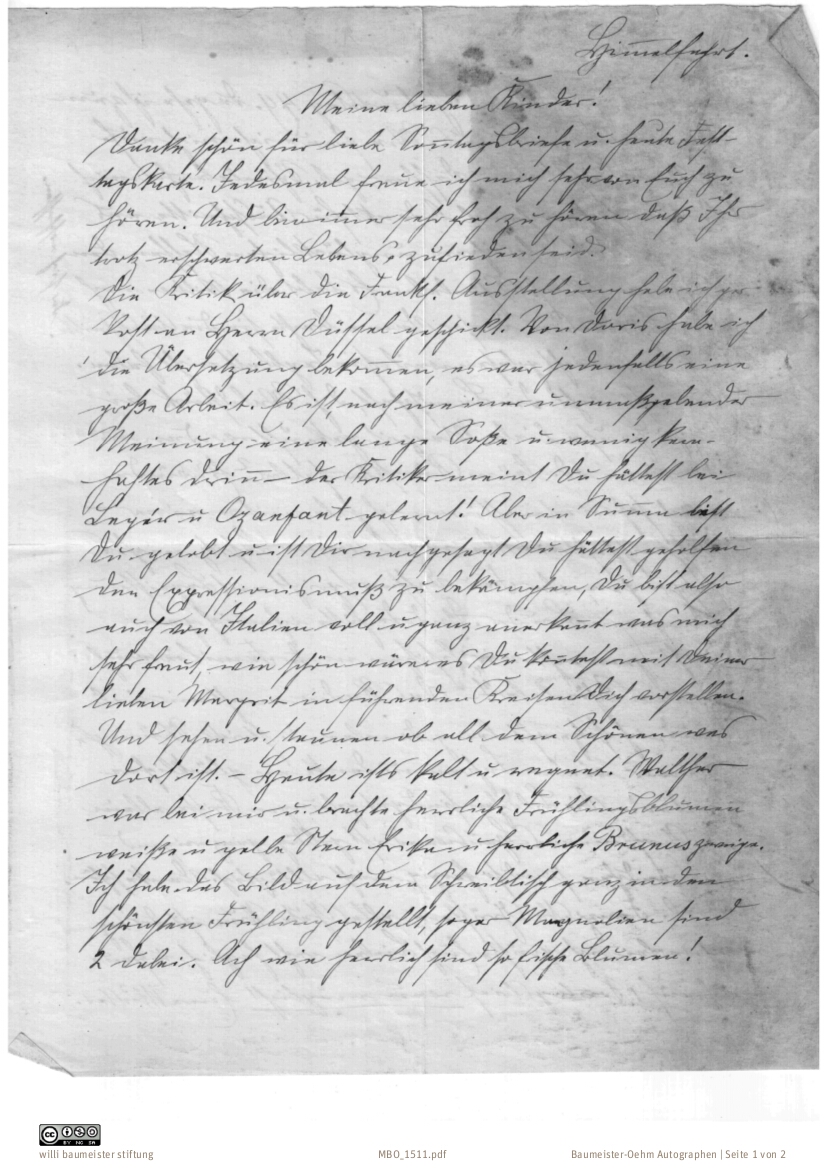 Himmelfahrt.
Meine lieben Kinder!
Danke schön für liebe Sonntagsbriefe u. heute Fest-
tagskarte. Jedesmal freue ich mich sehr von Euch zu
hören. Und bin immer sehr froh zu hören daß Ihr
trotz erschwerten Lebens, zufrieden seid.
Die Kritik über die Frankf. Ausstellung habe ich per
Post an Herrn Düssel geschickt. Von Doris habe ich
die Übersetzung bekommen, es war jedenfalls eine
große Arbeit. Es ist, nach meiner unmaßgebender
Meinung eine lange Soße u. wenig kern-
haftes drinn – der Kritiker meint Du hättest bei
Legér u Ozanfant gelernt! Aber in Summa bist
Du gelobt u ist Dir nachgesagt Du hättest geholfen
den Expressionismuß zu bekämpfen, Du bist also
auch von Italien voll u ganz anerkannt was mich
sehr freut, wie schön wäre es Du könntest mit Deiner
lieben Margrit in führenden Kreisen Dich vorstellen.
Und sehen u. staunen ob all dem Schönen was
dort ist. – Heute ists kalt u regnet. Walther
war bei mir u. brachte herrliche Frühlingsblumen
weiße u gelbe Stern Erika u herrliche Brunuszweige.
Ich habe das Bild auf dem Schreibtisch ganz in den
schönsten Frühling gestellt, sogar Magnolien sind
2 dabei. Ach wie herrlich sind so frische Blumen!
CC BY NC SA
willi baumeister stiftung
MBO_1511.pdf
Baumeister-Oehm Autographen | Seite 1 von 2